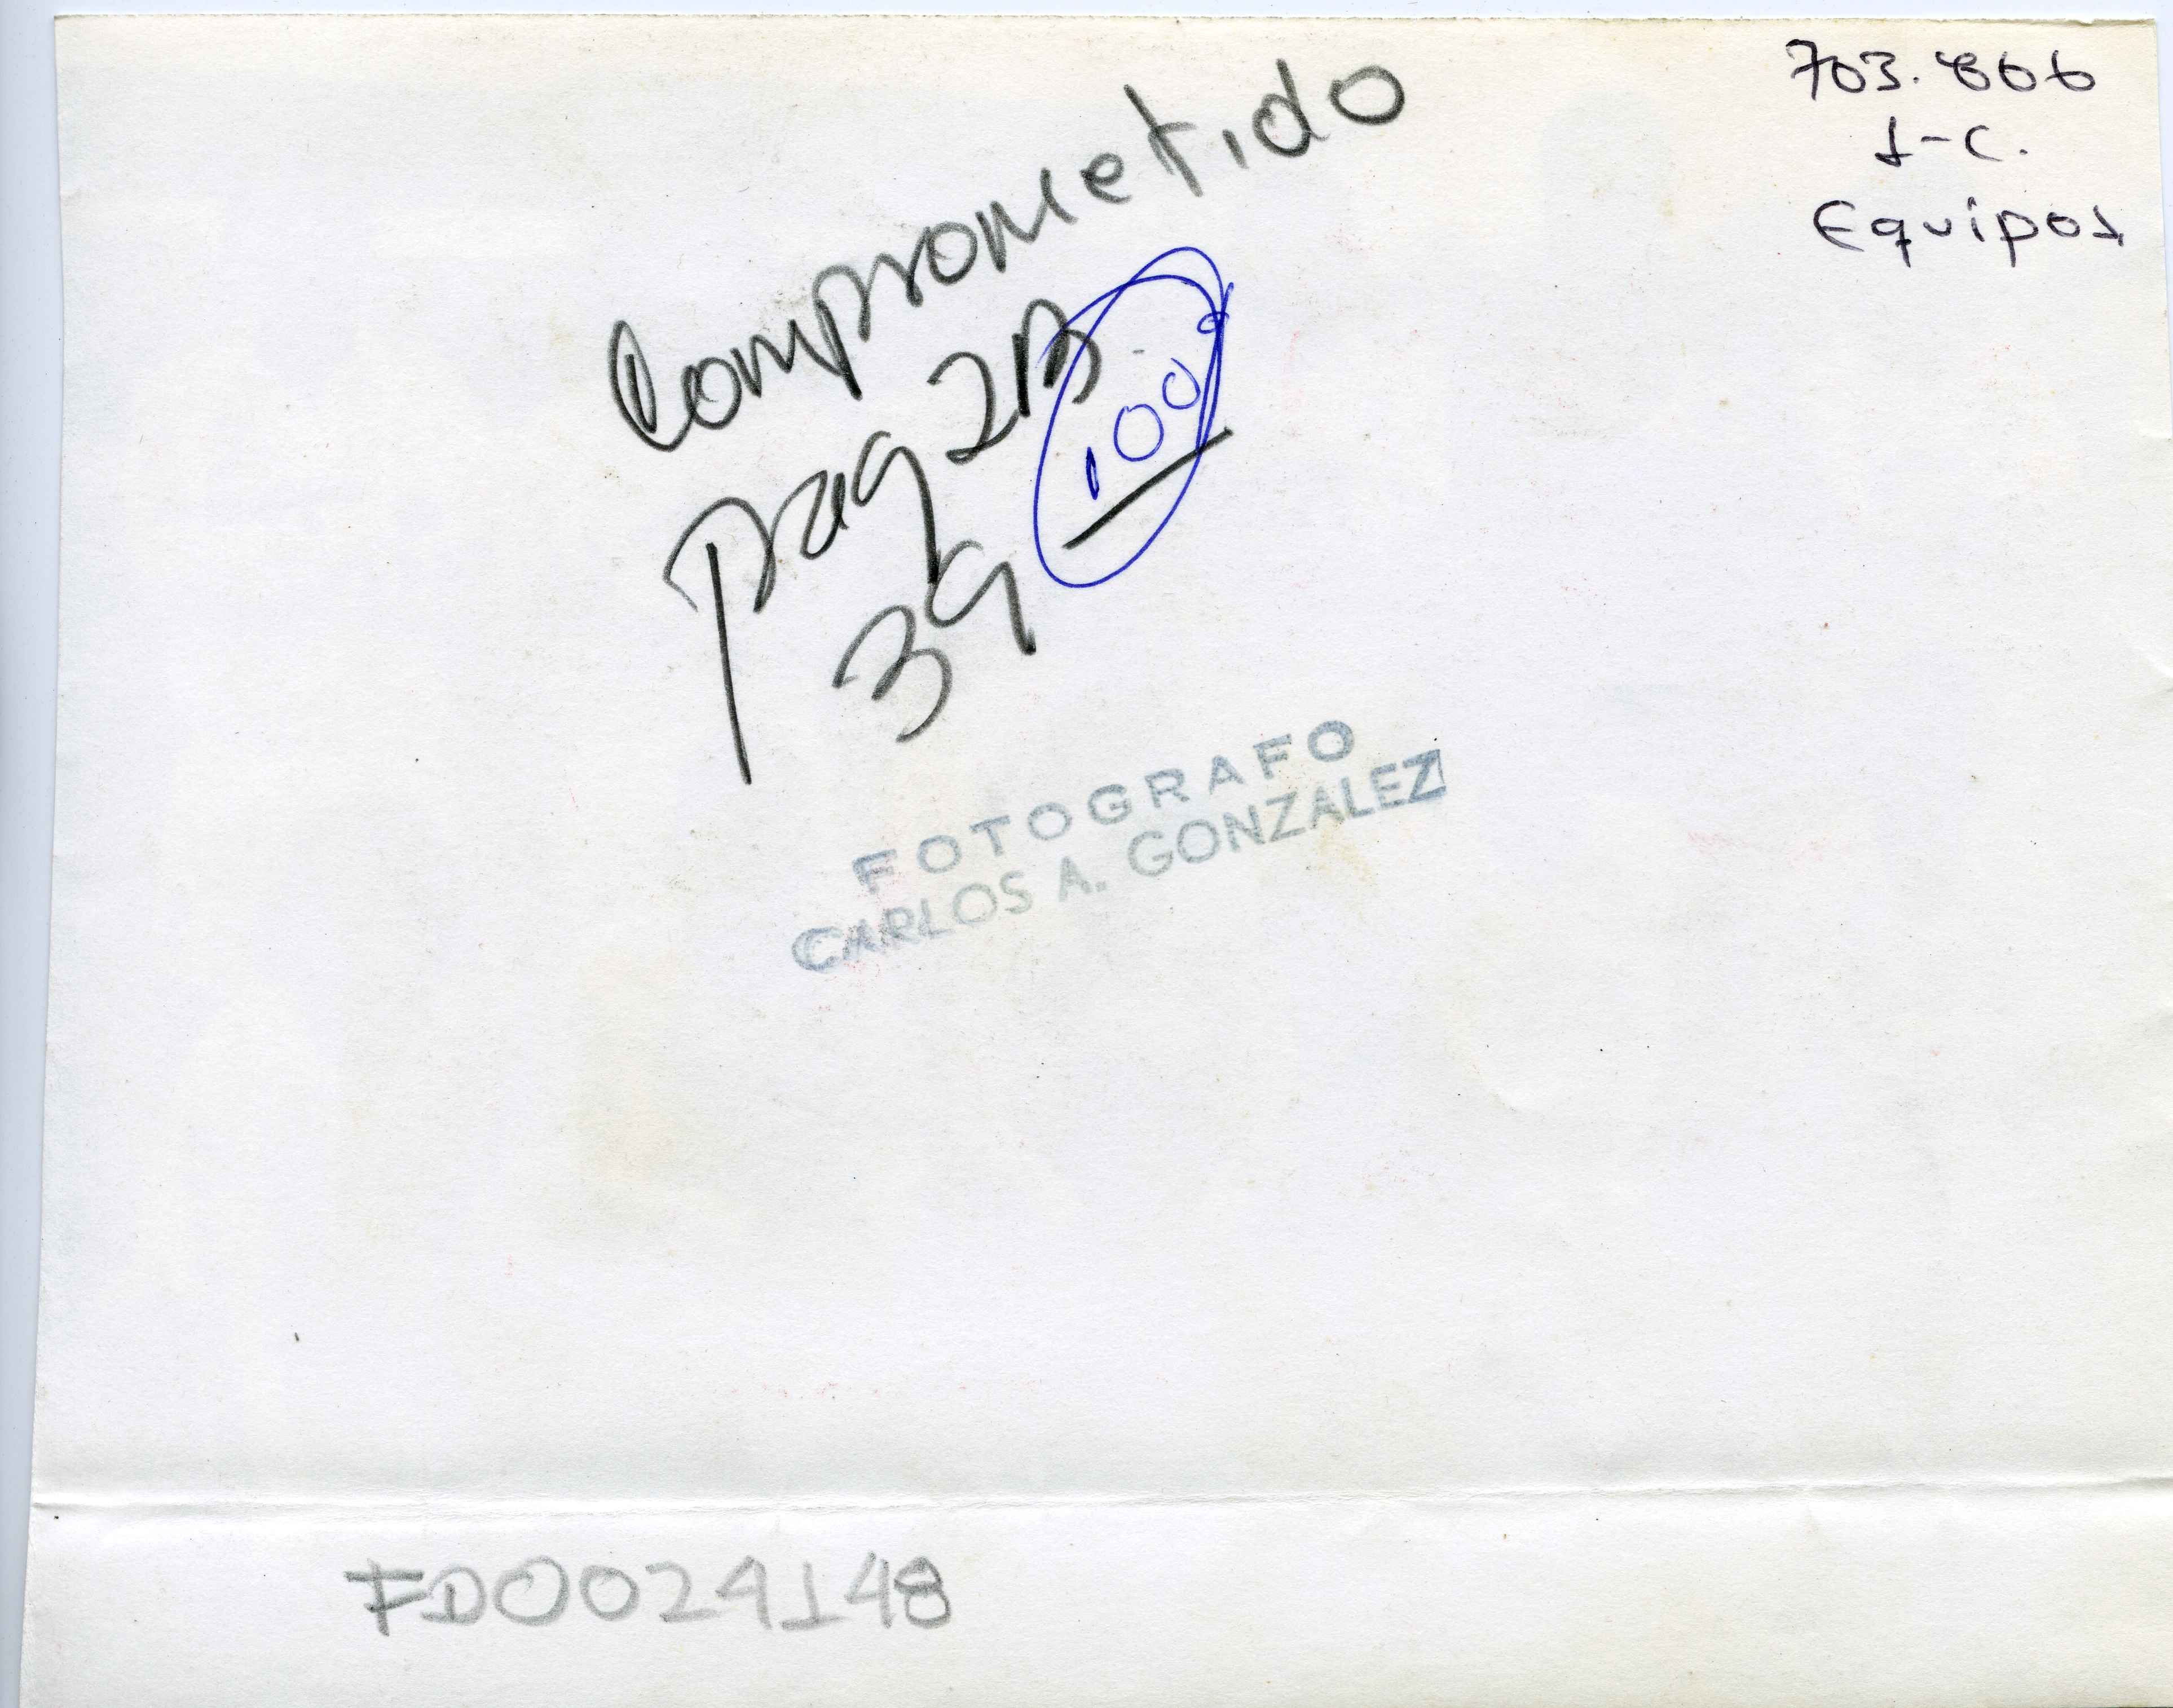 703.866
1-C.
Equipos
Comprometido
pag 2B
100%
39
FOTOGRAFO
CARLOS A. GONZALEZ
FD0029148